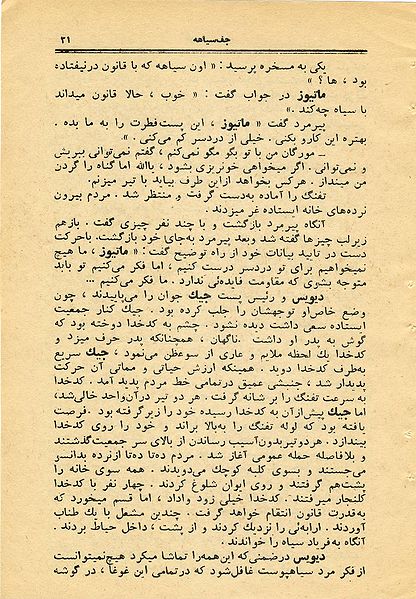 جف‌سیاهه ۲۱
یکی به مسخره پرسید : « اون سیاهه که با قانون درنیفتاده
بود ، ها ؟ »
ماتیوز در جواب گفت : « خوب ، حالا قانون میداند
با سیاه چه‌کند . »
پیرمرد گفت « ماتیوز ، این پست‌فطرت را به ما بده .
بهتره این کارو بکنی . خیلی از دردسر کم می‌کنی . »
ـ مورگان من با تو بگو مگو نمی‌کنم ، گفتم نمی‌توانی ببریش
و نمی‌توانی . اگر میخواهی خونریزی بشود ، یاالله اما گناه را گردن
من مینداز . هرکس بخواهد ازاین طرف بیاید با تیر میزنم .
تفنگ را آماده به‌دست گرفت و منتظر شد . مردم بیرون
نرده‌های خانه ایستاده غر میزدند .
آنگاه پیرمرد بازگشت و با چند نفر چیزی گفت . بازهم
زیرلب چیزها گفته شد وبعد پیرمرد به‌جای خود بازگشت. باحرکت
دست در تایید بیانات خود از راه توضیح گفت : « ماتیوز ، ما هیچ
نمیخواهیم برای تو دردسر درست کنیم ، اما فکر می‌کنیم تو باید
متوجه بشوی که مقاومت فایده‌ئی ندارد . ما فکر می‌کنیم ...
دیویس و رئیس پست جیك جوان را می‌پاییدند ، چون
وضع خاص‌او توجهشان را جلب کرده بود . جیك کنار جمعیت
ایستاده سعی داشت دیده نشود . چشم به کدخدا دوخته بود که
گوش به پدر او داشت . ناگهان ، همچنانکه پدر حرف میزد و
کدخدا یك لحظه ملایم و عاری از سوءظن می‌نمود ، جیك سریع
به‌طرف کدخدا دوید . همینکه ارزش حیاتی و مماتی آن حرکت
پدیدار شد ، جنبشی عمیق درتمامی خط مردم پدید آمد . کدخدا
به سرعت تفنگ را بر شانه گرفت . هر دو تیر درآن‌واحد خالی‌شد،
اما جیك پیش‌ازآن به کدخدا رسیده خود را زیرگرفته بود . فرصت
یافته بود که لوله تفنگ را به‌بالا براند و خود را روی کدخدا
بیندازد . هردوتیربدون‌آسیب رساندن از بالای سر جمعیت‌گذشتند
و بلافاصله حمله عمومی آغاز شد . مردم ده‌تا ده‌تا ازنرده بدانسو
می‌جستند و بسوی کلبه کوچك می‌دویدند . همه سوی خانه را
پشت‌هم گرفتند و روی ایوان شلوغ کردند . چهار نفر با کدخدا
کلنجار میرفتند . کدخدا خیلی زود واداد ، اما قسم میخورد که
به‌قدرت قانون انتقام خواهد گرفت . چندین مشعل با یك طناب
آوردند . ارابه‌ئی را نزدیك کردند و از پشت ، داخل حیاط بردند .
آنگاه به‌فریاد سیاه را خواندند .
دیویس درضمنی‌که این‌همه‌را تماشا میکرد هیچ‌نمیتوانست
ازفکر مرد سیاهپوست غافل‌شود که درتمامی این غوغا ، در گوشه